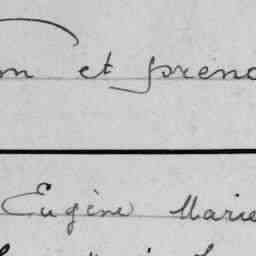 m et préno
Eugène Marie